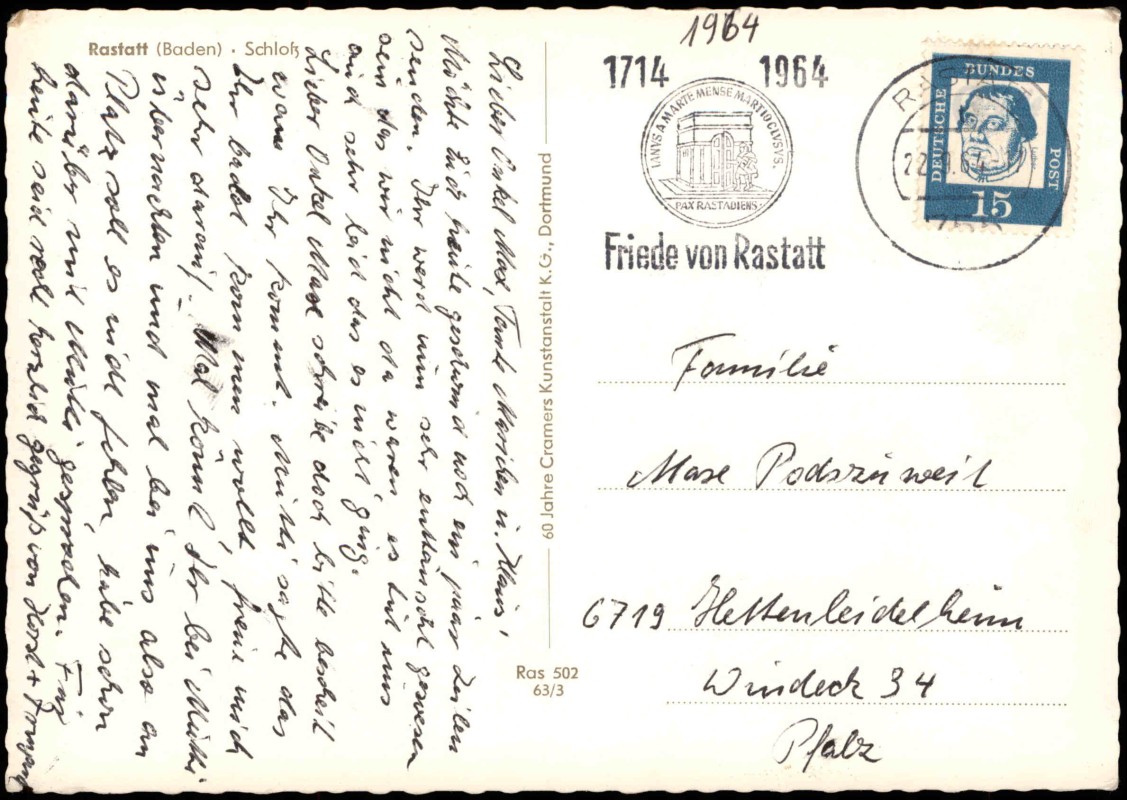 Rastatt (Baden) · Schloß
Lieber Onkel Max, Tante Mariechen u. Klaus!
Möchte Euch heute geschwind noch ein paar Zeilen
senden. Ihr werd nun sehr enttäuscht gewesen
sein das wir nicht da waren es tut uns
auch sehr leid das es nicht ging.
Lieber Onkel Max schreibe doch bitte bescheit
wann Ihr kommt. Mutti sagte das
Ihr bald kommen wollt, freue mich
sehr darauf. Mal könnt Ihr bei Mutti
übernachten und mal bei uns also an
Platz soll es nicht fehlen, habe schon
darüber mit Mutti gesprochen. Für
heute seid recht herzlich gegrüßt von Horst +
60 Jahre Cramers Kunstanstalt K.G., Dortmund
Ras 502
63/3
1964
1714 1964
IANVS A MARTE MENSE MARTIO CLVSVS.
PAX RASTADIENS.
Friede von Rastatt
RASTATT
22.9.64
DEUTSCHE BUNDES POST
15
Familie
Max Podszuweit
6719 Hettenleidelheim
Windeck 34
Pfalz